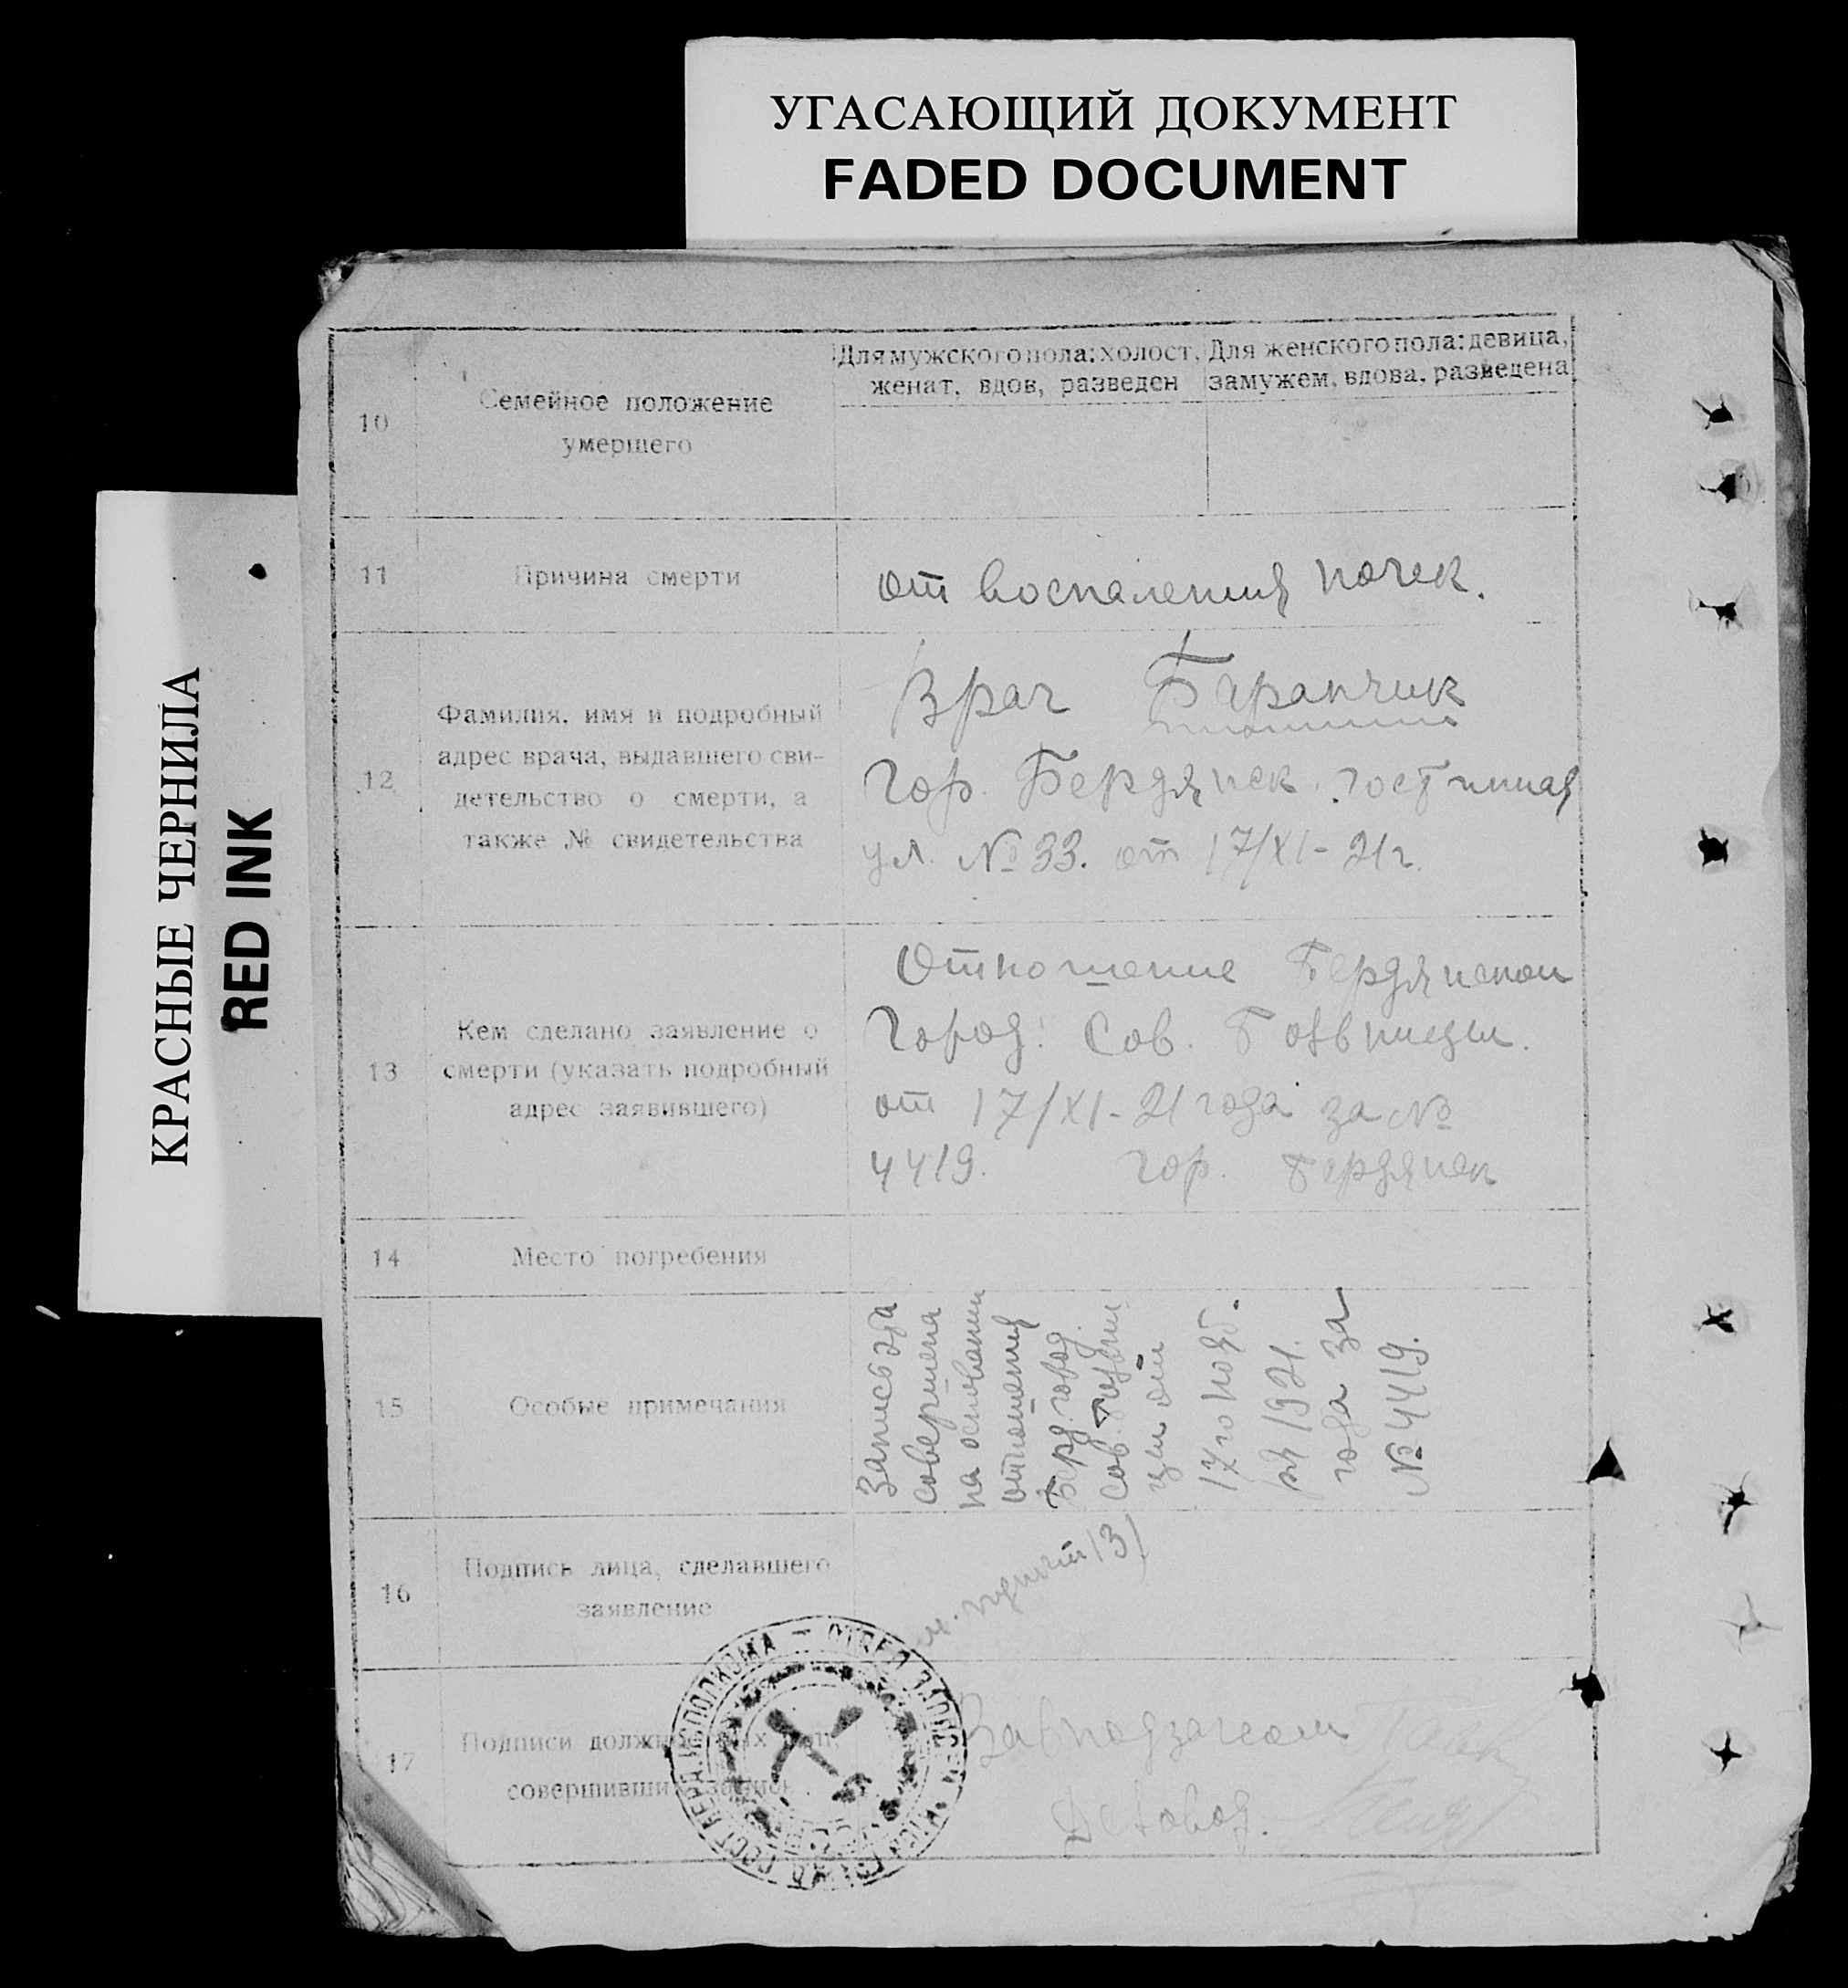 УГАСАЮЩИЙ ДОКУМЕНТ
FADED DOCUMENT
КРАСНЫЕ ЧЕРНИЛА
RED INK
10
Семейное положение
умершего
Для мужского пола: холост,
женат, вдов, разведен
Для женского пола: девица,
замужем, вдова, разведена
11
Причина смерти
от воспаления почек.
12
Фамилия, имя и подробный
адрес врача, выдавшего сви-
детельство о смерти, а
также № свидетельства
Врач Баранчик
Гор. Бердянск. гостинная
ул. № 33. от 17/XI-21г.
13
Кем сделано заявление о
смерти (указать подробный
адрес заявившего)
Отношение Бердянской
Город. Сов. Больницы.
от 17/XI-21 года за №
4419. гор. Бердянск
14
Место погребения
15
Особые примечания
Запись эта
совершена
на основании
отношения
Берд. город.
Сов. Больни
цы от
17го нояб.
ря 1921.
года за
№ 4419.
16
Подпись лица, сделавшего
заявление
см. пункт 13)
17
Подписи должностных лиц,
совершивших запись
Завподзагсом
Деловод.
ОТДЕЛ ЗАПИСЕЙ